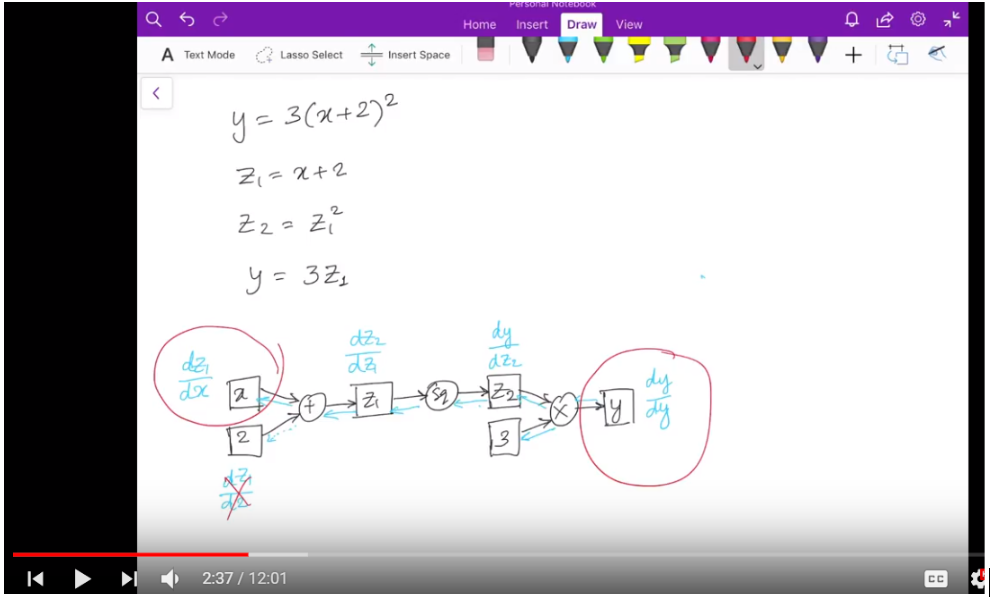 Personal Notebook
Home Insert Draw View
A Text Mode Lasso Select Insert Space
y = 3(x+2)²
z₁ = x+2
z₂ = z₁²
y = 3z₁
dz₁/dx
dz₂/dz₁
dy/dz₂
dy/dy
x + z₁ Sq z₂ × y
2 3
2:37 / 12:01 CC